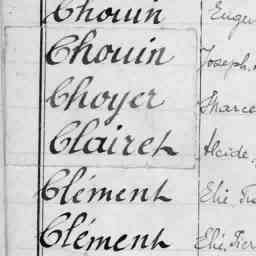 Chouin Eugè
Chouin Joseph
Choyer Marce
Clairet Alcide
Clément Elie
Clément Elie, Pier